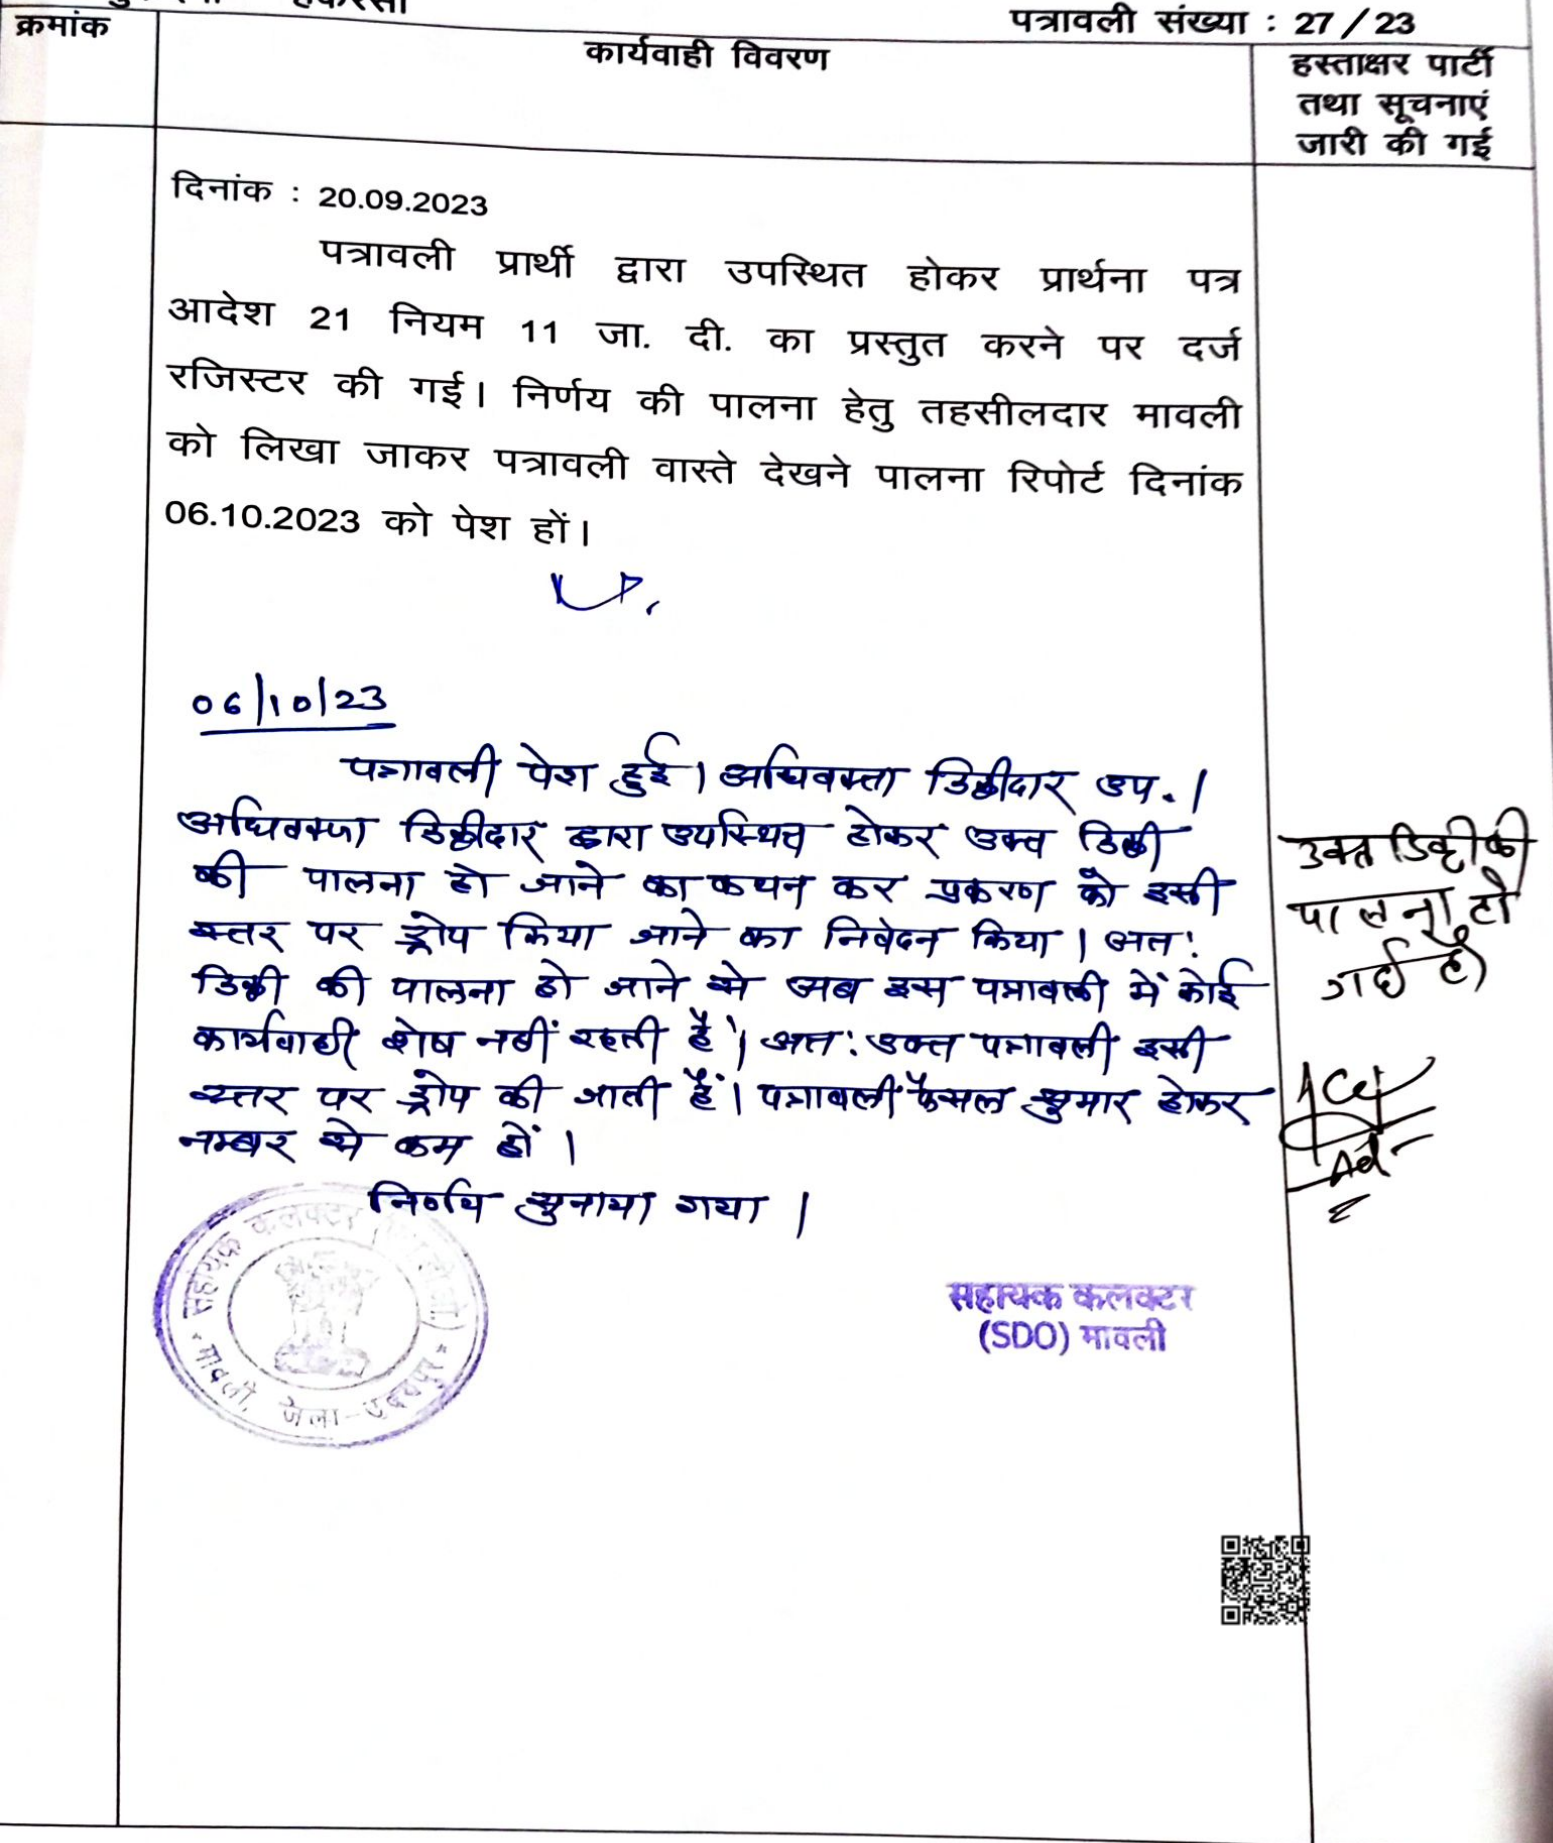 पत्रावली संख्या : 27 / 23
क्रमांक
कार्यवाही विवरण
हस्ताक्षर पार्टी
तथा सूचनाएं
जारी की गई
दिनांक : 20.09.2023
पत्रावली प्रार्थी द्वारा उपस्थित होकर प्रार्थना पत्र
आदेश 21 नियम 11 जा. दी. का प्रस्तुत करने पर दर्ज
रजिस्टर की गई। निर्णय की पालना हेतु तहसीलदार मावली
को लिखा जाकर पत्रावली वास्ते देखने पालना रिपोर्ट दिनांक
06.10.2023 को पेश हों।
06/10/23
पत्रावली पेश हुई। अधिवक्ता डिक्रीदार उप.।
अधिवक्ता डिक्रीदार द्वारा उपस्थित होकर उक्त डिक्री
की पालना हो जाने का कथन कर प्रकरण को इसी
स्तर पर ड्रोप किया जाने का निवेदन किया। अतः
डिक्री की पालना हो जाने से अब इस पत्रावली में कोई
कार्यवाही शेष नहीं रहती है। अतः उक्त पत्रावली इसी
स्तर पर ड्रोप की जाती हैं। पत्रावली फैसल शुमार होकर
नम्बर से कम हों।
निर्णय सुनाया गया।
उक्त डिक्री की
पालना हो
गई है
सहायक कलक्टर
मावली, जिला-उदयपुर
सहायक कलक्टर
(SDO) मावली